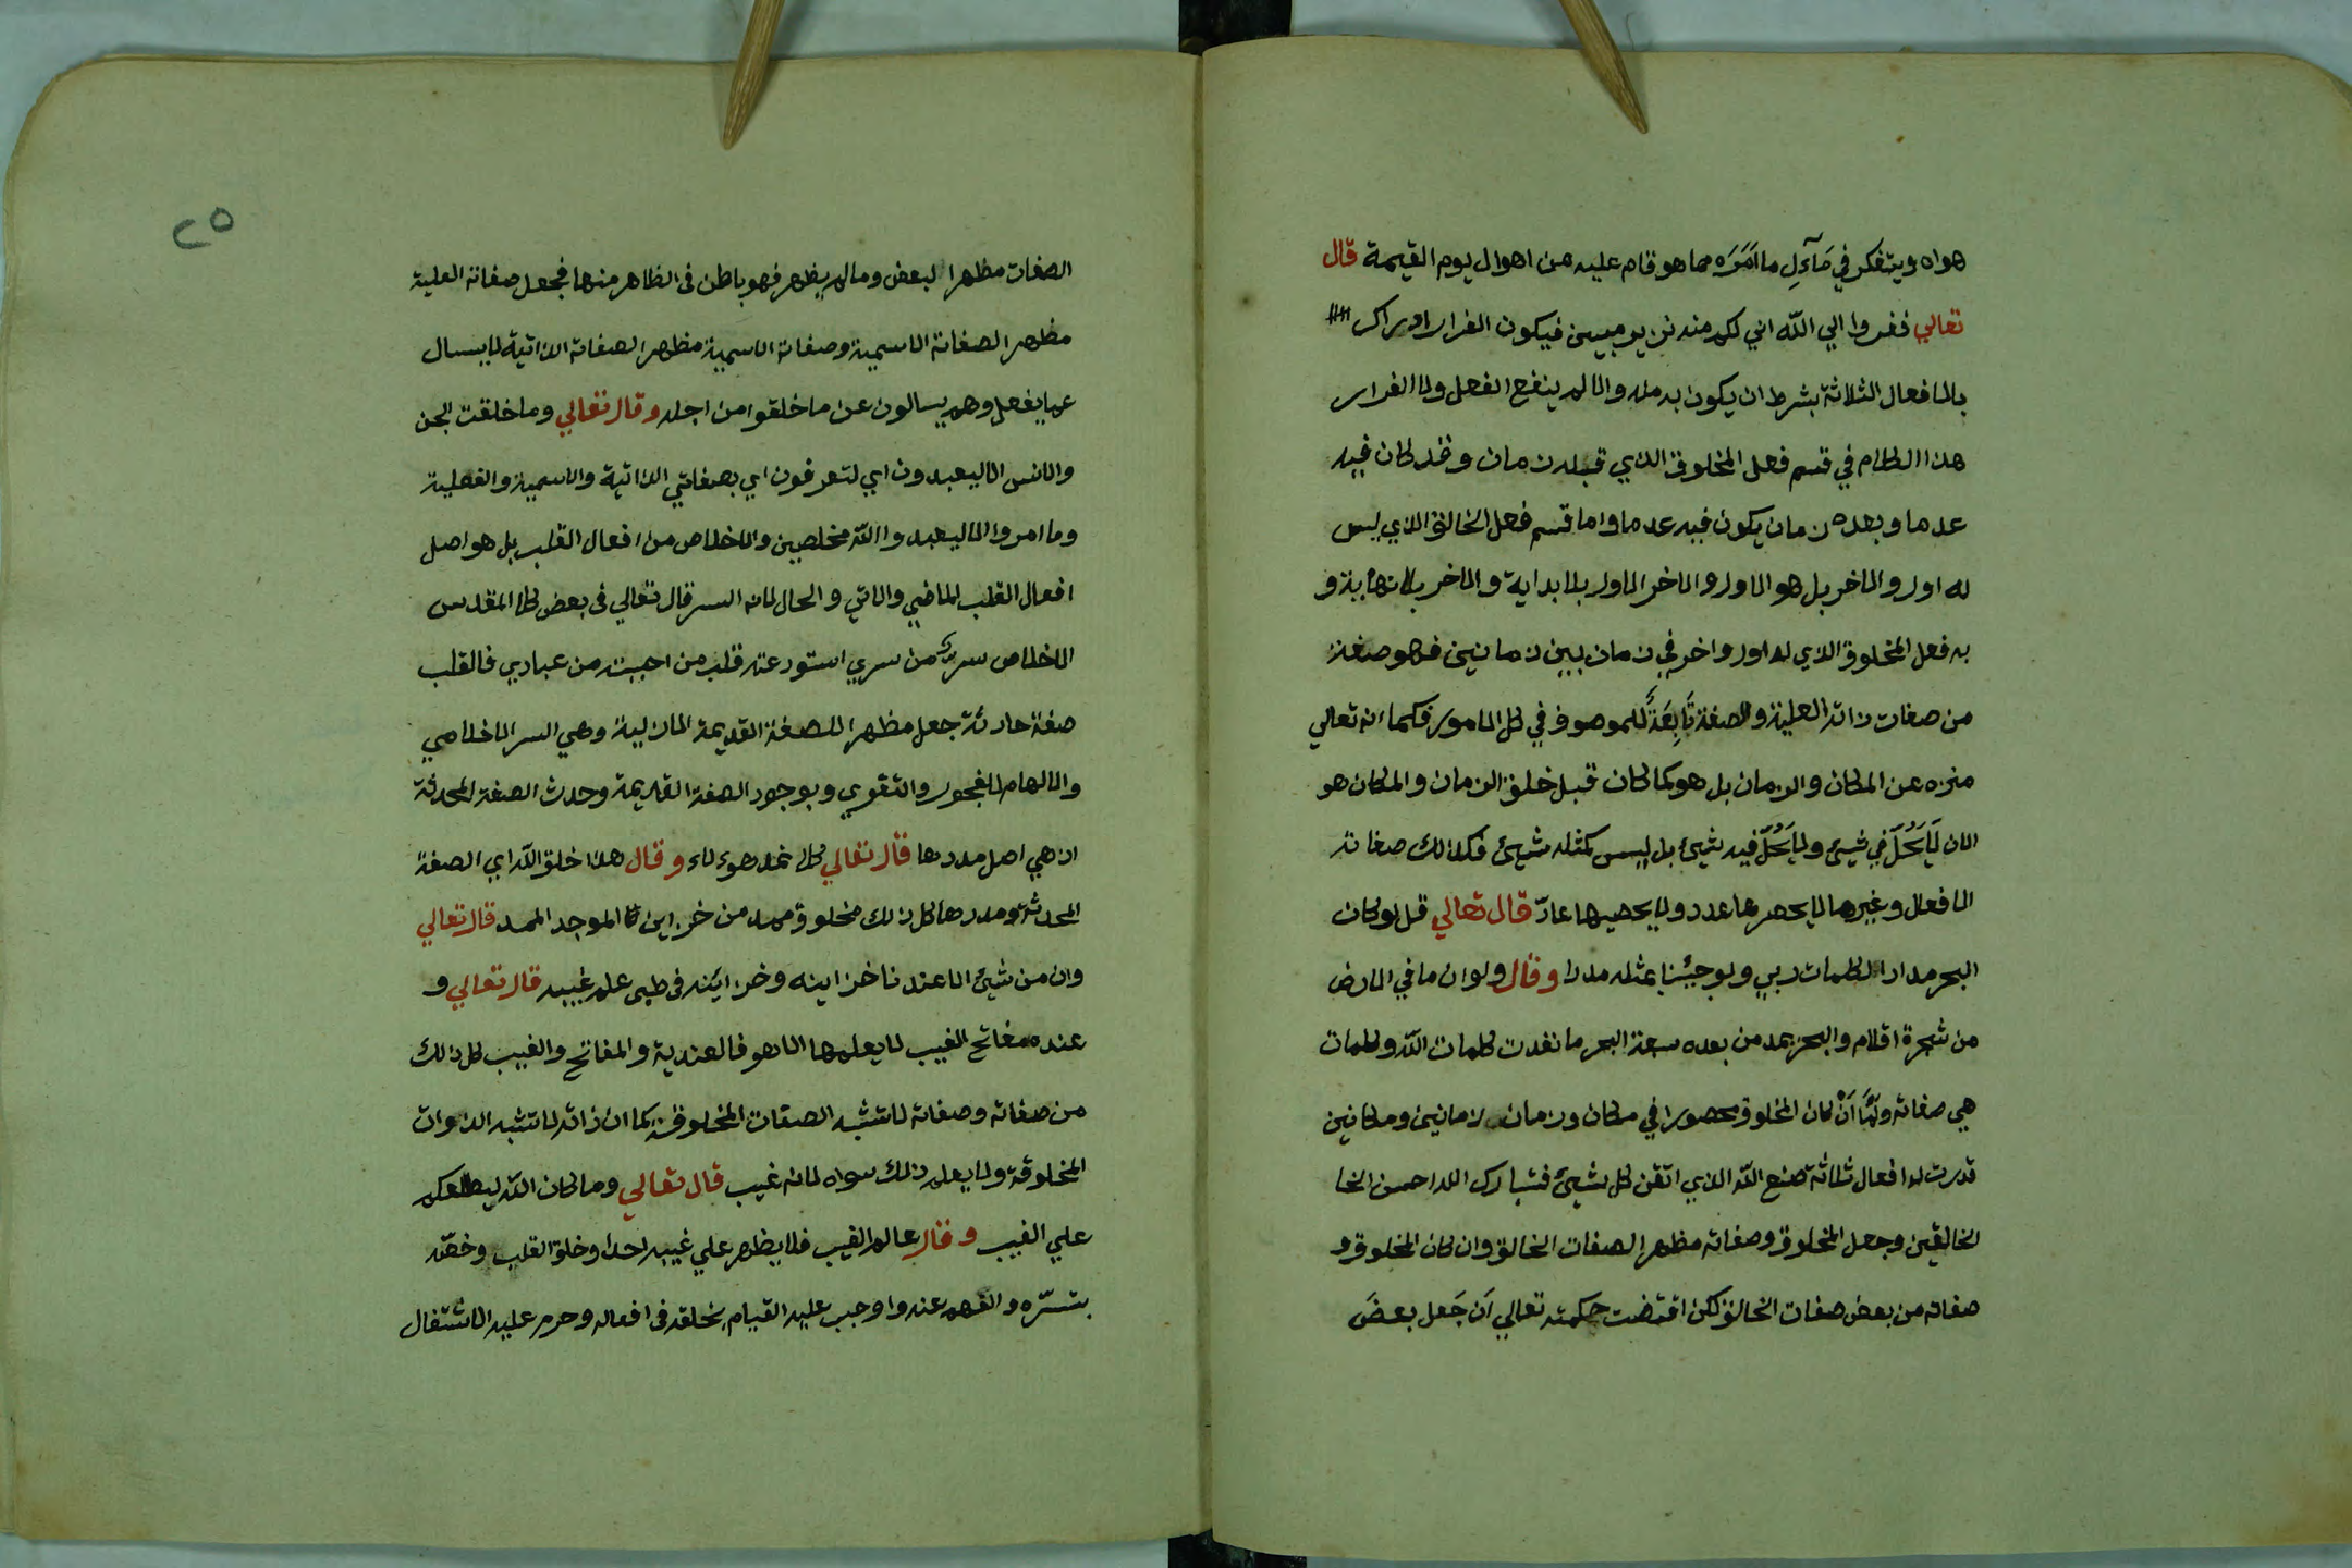 هواه ويتفكر في مآءلِ ما اَمَرَه مما هو قام عليه من اهوال يوم القيمة قال
تعالي ففروا الي الله اني لكم منه نذير مبين فيكون الفرار ادراك
بالافعال الثلاثة بشرط ان يكون به منه والا لم ينفع الفعل ولا الفرار
هذا الكلام في قسم فعل المخلوق الذي قبله زمان وقد كان فيه
عدما وبعده زمان يكون فيه عدما واما قسم فعل الخالق الذي ليس
له اول والاخر بل هو الاول والاخر الاول بلا بداية والاخر بلا نهاية و
به فعل المخلوق الذي له اول واخر في زمان بين زمانين فهو صفة
من صفات ذاته العلية والصفة تَابِعَةً للموصوف في كل الامور فكما انه تعالي
منزه عن المكان والزمان بل هو كما كان قبل خلق الزمان والمكان هو
الان لَايَحُلّ في شيئ ولايَحُلّ فيه شيئ بل ليس كمثله شيئ فكذالك صفاته
الافعال وغيرها لايحصرها عدد ولا يحصيها عادّ قال تعالي قل لو كان
البحر مدادا لكلمات ربي ولو جيئنا بمثله مددا وقال ولو ان ما في الارض
من شجرة اقلام والبحر يمده من بعده سبعة البحر ما نفدت كلمات الله وكلمات
هي صفاته ولَمَّا اَنْ كان المخلوق محصورا في مكان وزمان زمانين ومكانين
قدرت له افعال ثلاثة صنع الله الذي اتقن كل شيئ فتبارك الله احسن الخا
الخالقين وجعل المخلوق وصفاته مظهر الصفات الخالق وان كان المخلوق و
صفاته من بعض صفات الخالق لكن اقتضت حكمته تعالي اَن جَعل بعضَ
٢٥
الصفات مظهرا لبعض وما لم يظهر فهو باطن في الظاهر منها فجعل صفاته العلية
مظهر الصفاته الاسمية وصفاته الاسمية مظهر الصفاته الذاتية لايسال
عما يفعل وهم يسالون عن ما خلقوا من اجله وقال تعالي وما خلقت الجن
والانس الا ليعبدون اي لتعرفون اي بصفاتي الذاتية والاسمية والفعلية
وما امروا الا ليعبدوا الله مخلصين والاخلاص من افعال القلب بل هو اصل
افعال القلب الماضي والاتي والحال لانه السر قال تعالي في بعض كلامه المقدس
الاخلاص سر من سري استودعته قلب من احببته من عبادي فالقلب
صفة حادثة جعل مظهرا للصفة القديمة الازلية وهي السر الاخلاصي
والالهام للفجور والتقوي وبوجود الصفة القديمة وحدث الصفة المحدثة
اذ هي اصل مددها قال تعالي كلا نمد هوءلاء وقال هذا خلق الله اي الصفة
المحدثة ومددها كل ذلك مخلوق ممد من خزاين الموجد الممد قال تعالي
وان من شيئ الا عندنا خزاينه وخزائنه في طي علم غيبه قال تعالي و
عنده مفاتح الغيب لا يعلمها الا هو فالعندية والمفاتح والغيب كل ذالك
من صفاته وصفاته لاتشبه الصفات المخلوقة كما ان ذاته لاتشبه الذوات
المخلوقة ولا يعلم ذلك سواه لانه غيب قال تعالي وما كان الله ليطلعكم
علي الغيب وقال عالم الغيب فلا يظهر علي غيبه احدا وخلق القلب وخصّه
بسرّه والفهم عنه واوجب عليه القيام بخلقه في افعاله وحرم عليه الاشتغال